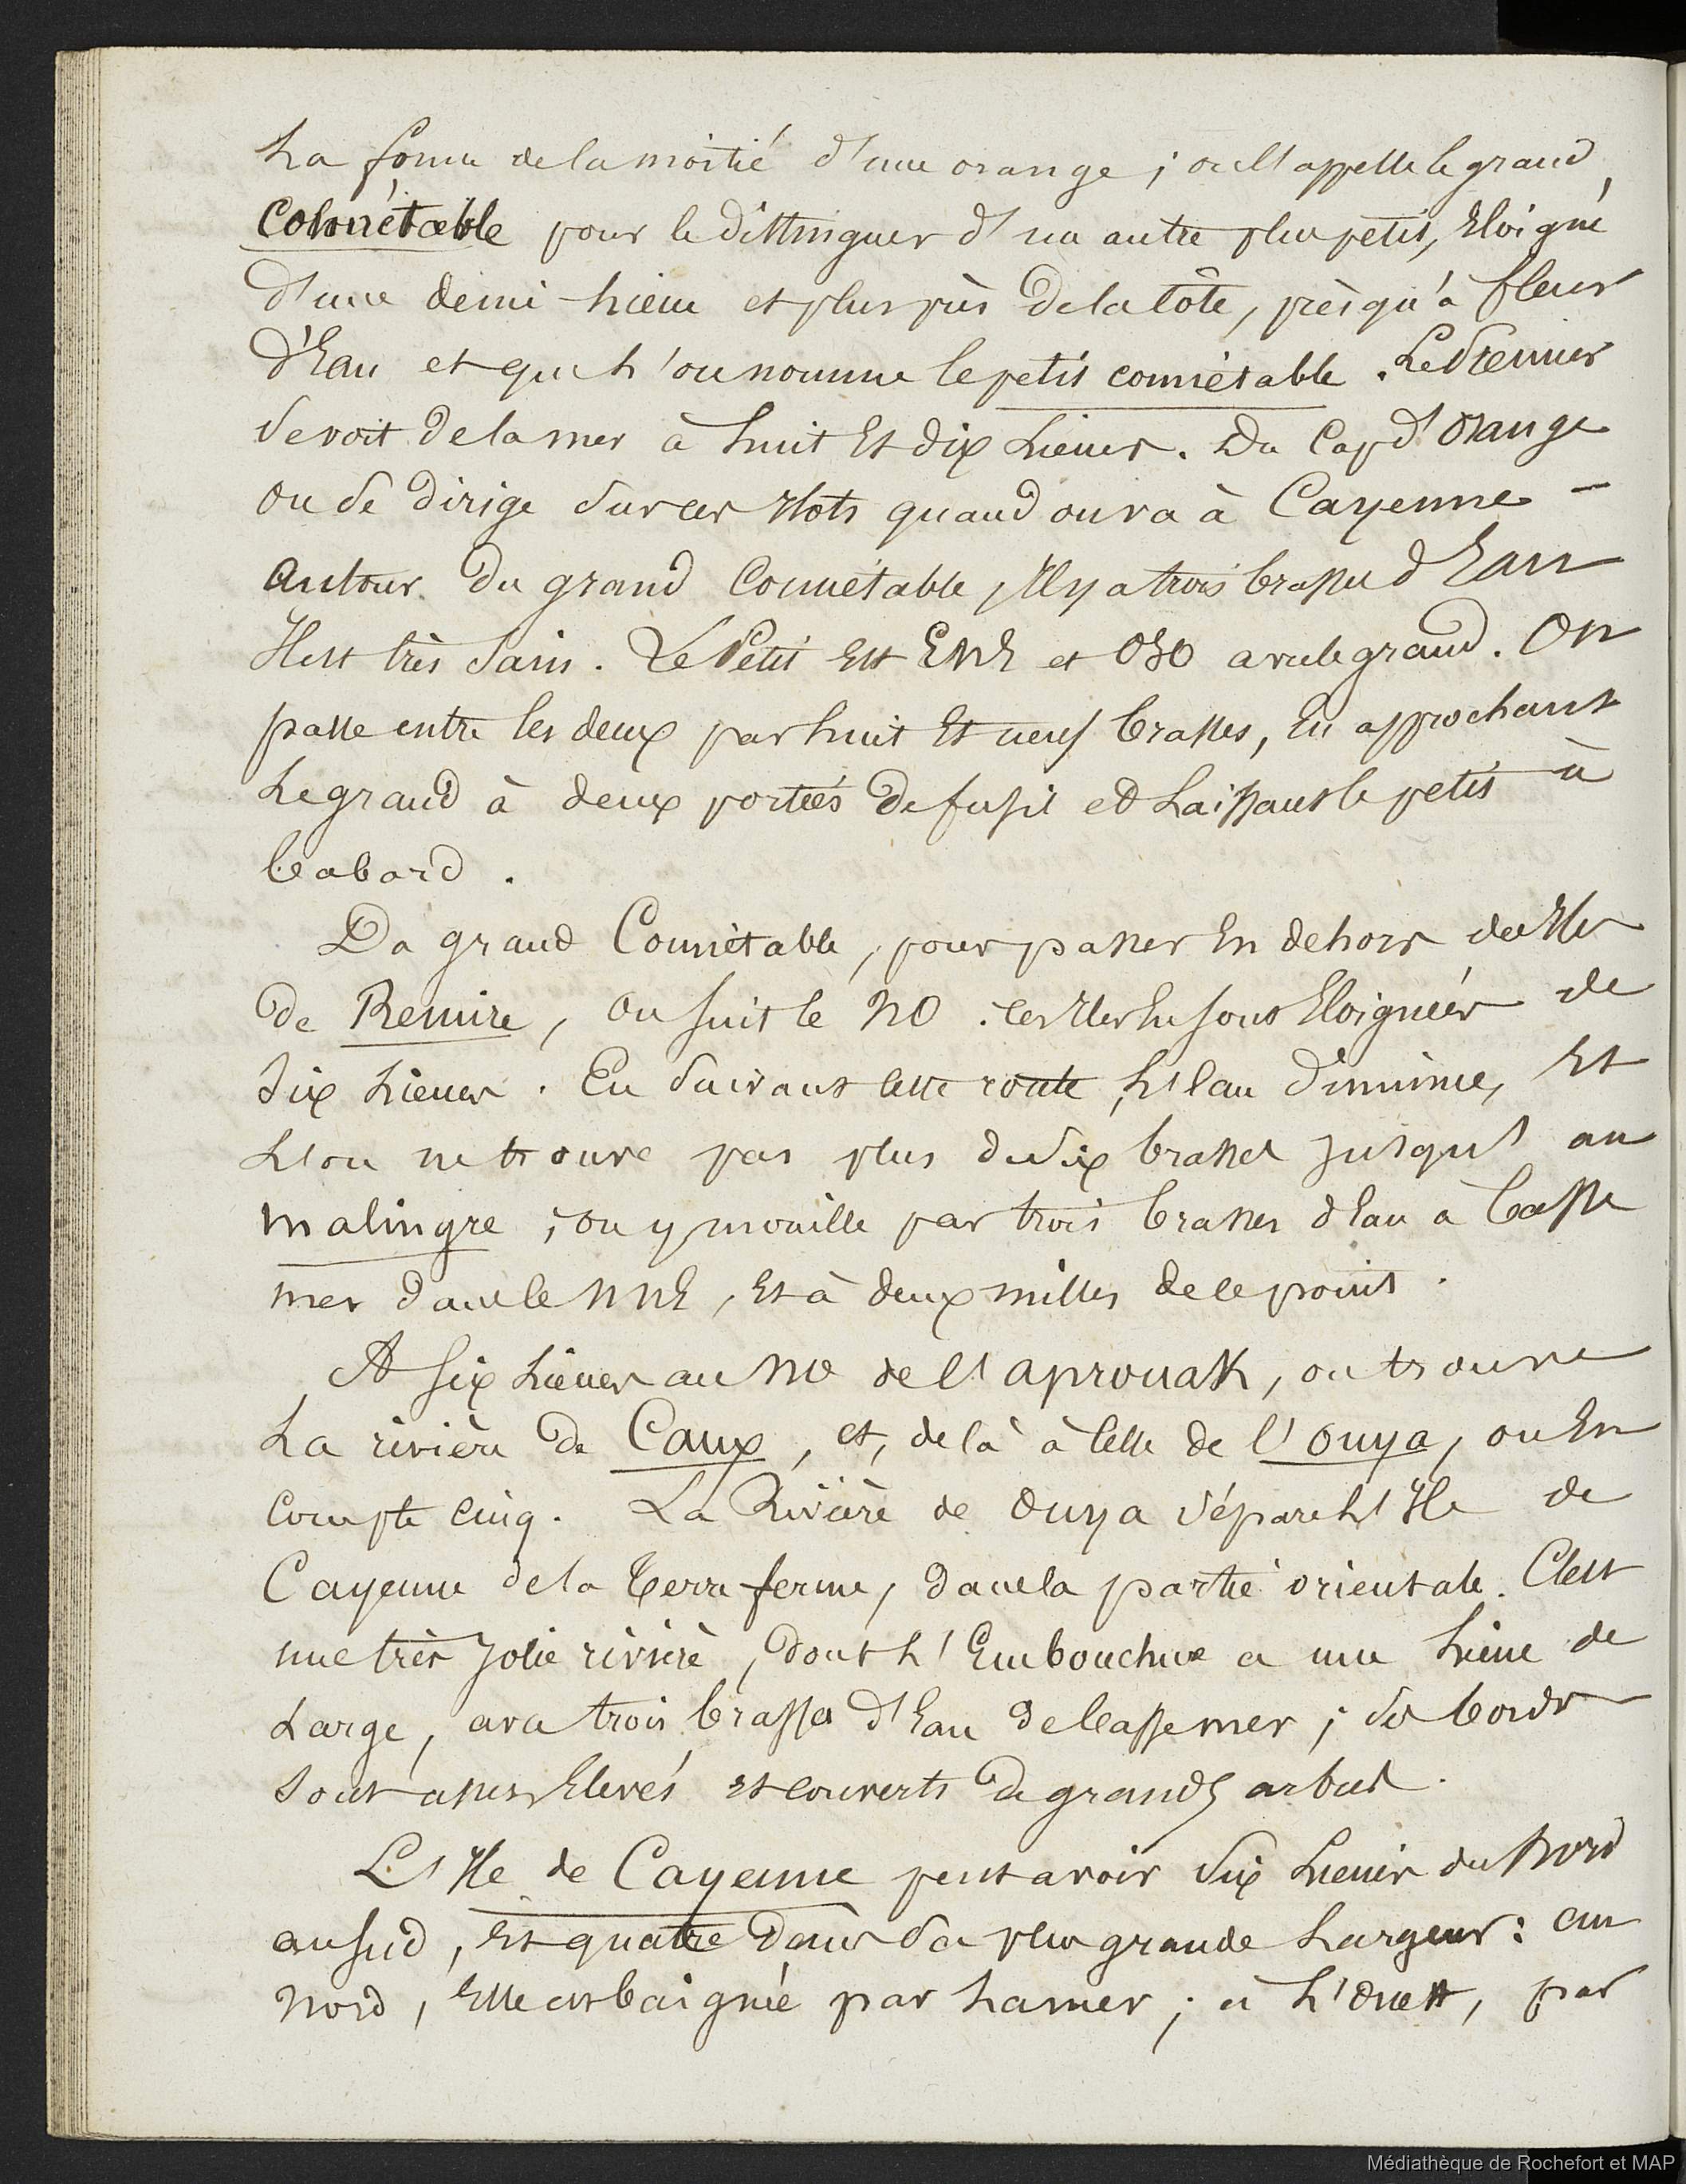 La forme de la moitié d'une orange ; on l'appelle le grand
Connétable pour le distinguer d'un autre plus petit, Eloigné
d'une demi-lieue et plus près de la côte, presqu'à fleur
d'Eau et que l'on nomme le petit connétable. Le Premier
se voit de la mer à huit Et dix Lieues. Du Cap d'Orange
on se dirige sur ces Ilots quand on va à Cayenne -
Autour du grand Connétable, Il y a trois brasses d'Eau
Il est très sain. Le Petit Est ENE et OSO avec le grand. On
passe entre les deux par huit Et neuf brasses, En approchant
Le grand à deux portées de fusil et Laissant le petit à
babord.
Du grand Connétable, pour passer En dehors des Iles
de Remire, on suit le NO. ces Iles En sont Eloignées de
dix Lieues. En suivant cette route, l'Eau diminue, Et
L'on ne trouve pas plus de six brasses jusqu'au
malingre ; on y mouille par trois brasses d'Eau à basse
mer dans le NNE, Et à deux milles de ce point.
A six Lieues au NO de l'aprouak, on trouve
La rivière de Caux, et, de là à celle de l'Ouya, on En
compte cinq. La Rivière de Ouya sépare L'Ile de
Cayenne de la terre-ferme, dans la partie orientale. C'est
une très jolie rivière, dont L'Embouchure a une Lieue de
Large, avec trois brasses d'Eau de basse mer ; ses bords
sont assez Elevés Et couverts de grands arbres.
L'Ile de Cayenne peut avoir six Lieues du Nord
au sud, Et quatre dans sa plus grande Largeur : au
Nord, Elle est baignée par La mer ; à L'Ouest, par
Médiathèque de Rochefort et MAP